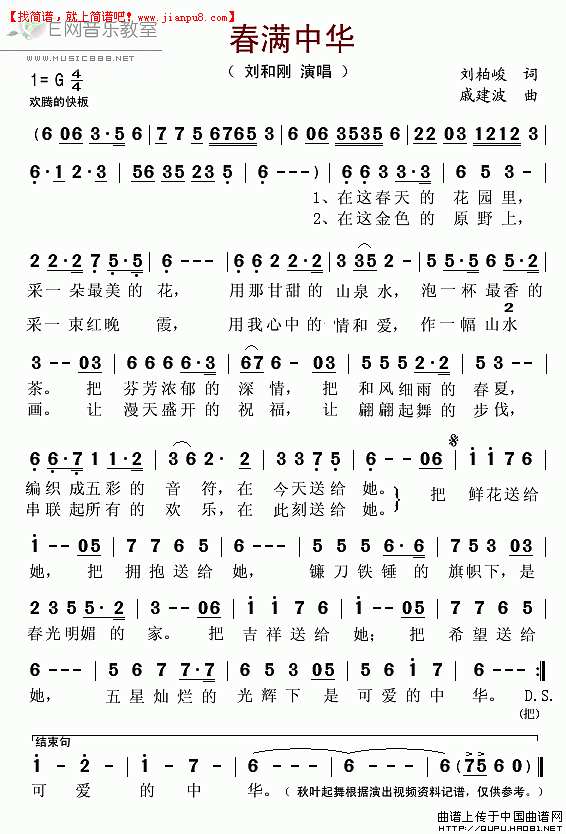 【找简谱，就上简谱吧！www.jianpu8.com】
E网音乐教室
WWW.MUSIC888.NET
春满中华
（ 刘和刚 演唱 ）
1=G 4/4
刘柏峻 词
欢腾的快板
戚建波 曲
(6 06 3·5 6 | 7 7 5 6765 3 | 6 06 3535 6 | 22 03 1212 3 |
6·1 2·3 | 56 35 23 5 | 6 - - -) | 6 6 3 3·3 | 6 5 3 - |
1、在这春天 的 花 园 里，
2、在这金色 的 原 野 上，
2 2·2 7 5·5 | 6 - - - | 6 6 2 2·2 | 3 35 2 - | 5 5·5 6 5·2 |
采一 朵最美 的 花， 用 那 甘甜 的 山泉 水， 泡一 杯 最香 的
采一 束红晚 霞， 用 我 心中 的 情和 爱， 作一 幅 山水
2
3 - - 03 | 6 6 6 6·3 | 6 76 - 03 | 5 5 5 5·2 | 5 3 2 - |
茶。 把 芬芳浓郁 的 深 情， 把 和风细雨 的 春夏，
画。 让 漫天盛开 的 祝 福， 让 翩翩起舞 的 步伐，
6 6·7 1 1·2 | 3 6 2· 2 | 3 3 5 7 5 | 6 - - 06 | i i 7 6
编织 成五彩 的 音 符，在 今天送给 她。 把 鲜花送给
串联 起所有 的 欢 乐，在 此刻送给 她。
i - - 05 | 7 7 6 5 | 6 - - 03 | 5 5 5 6·6 | 7 5 3 03 |
她， 把 拥抱送给 她， 镰刀铁锤 的 旗帜下，是
2 3 5 5·2 | 3 - - 06 | i i 7 6 | i - - 05 | 7 7 6 5 |
春光明媚 的 家。 把 吉祥送给 她； 把 希望送给
6 - - - | 5 6 7 7·7 | 6 5 3 05 | 5 6 7 5 | 6 - - :||
她， 五星灿烂 的 光辉下 是 可爱的中 华。D.S.
(把)
结束句
i - 2 - | i - 7 - | 6 - - - | 6 - - - | 6 (75 6 0) ||
可 爱 的 中 华。（ 秋叶起舞根据演出视频资料记谱，仅供参考。）
曲谱上传于中国曲谱网
http://QUPU.HAO81.NET